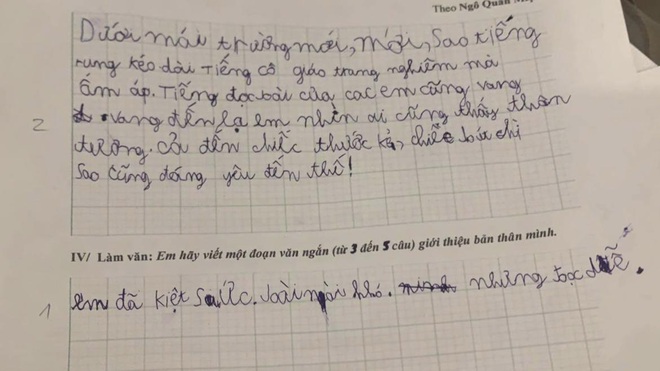 Theo Ngô Quân
Dưới mái trường mới, mới, Sao tiếng
rung kéo dài Tiếng cô giáo trang nghiêm mà
ấm áp. Tiếng đọc bài của các em cũng vang
vang đến lạ em nhìn ai cũng thấy thân
2
tương. Cả đến chiếc thước kẻ, chiếc bút chì
Sao cũng đáng yêu đến thế!
IV/ Làm văn: Em hãy viết một đoạn văn ngắn (từ 3 đến 5 câu) giới thiệu bản thân mình.
1 em đã kiệt Sức. bài khó. những đọc dễ.